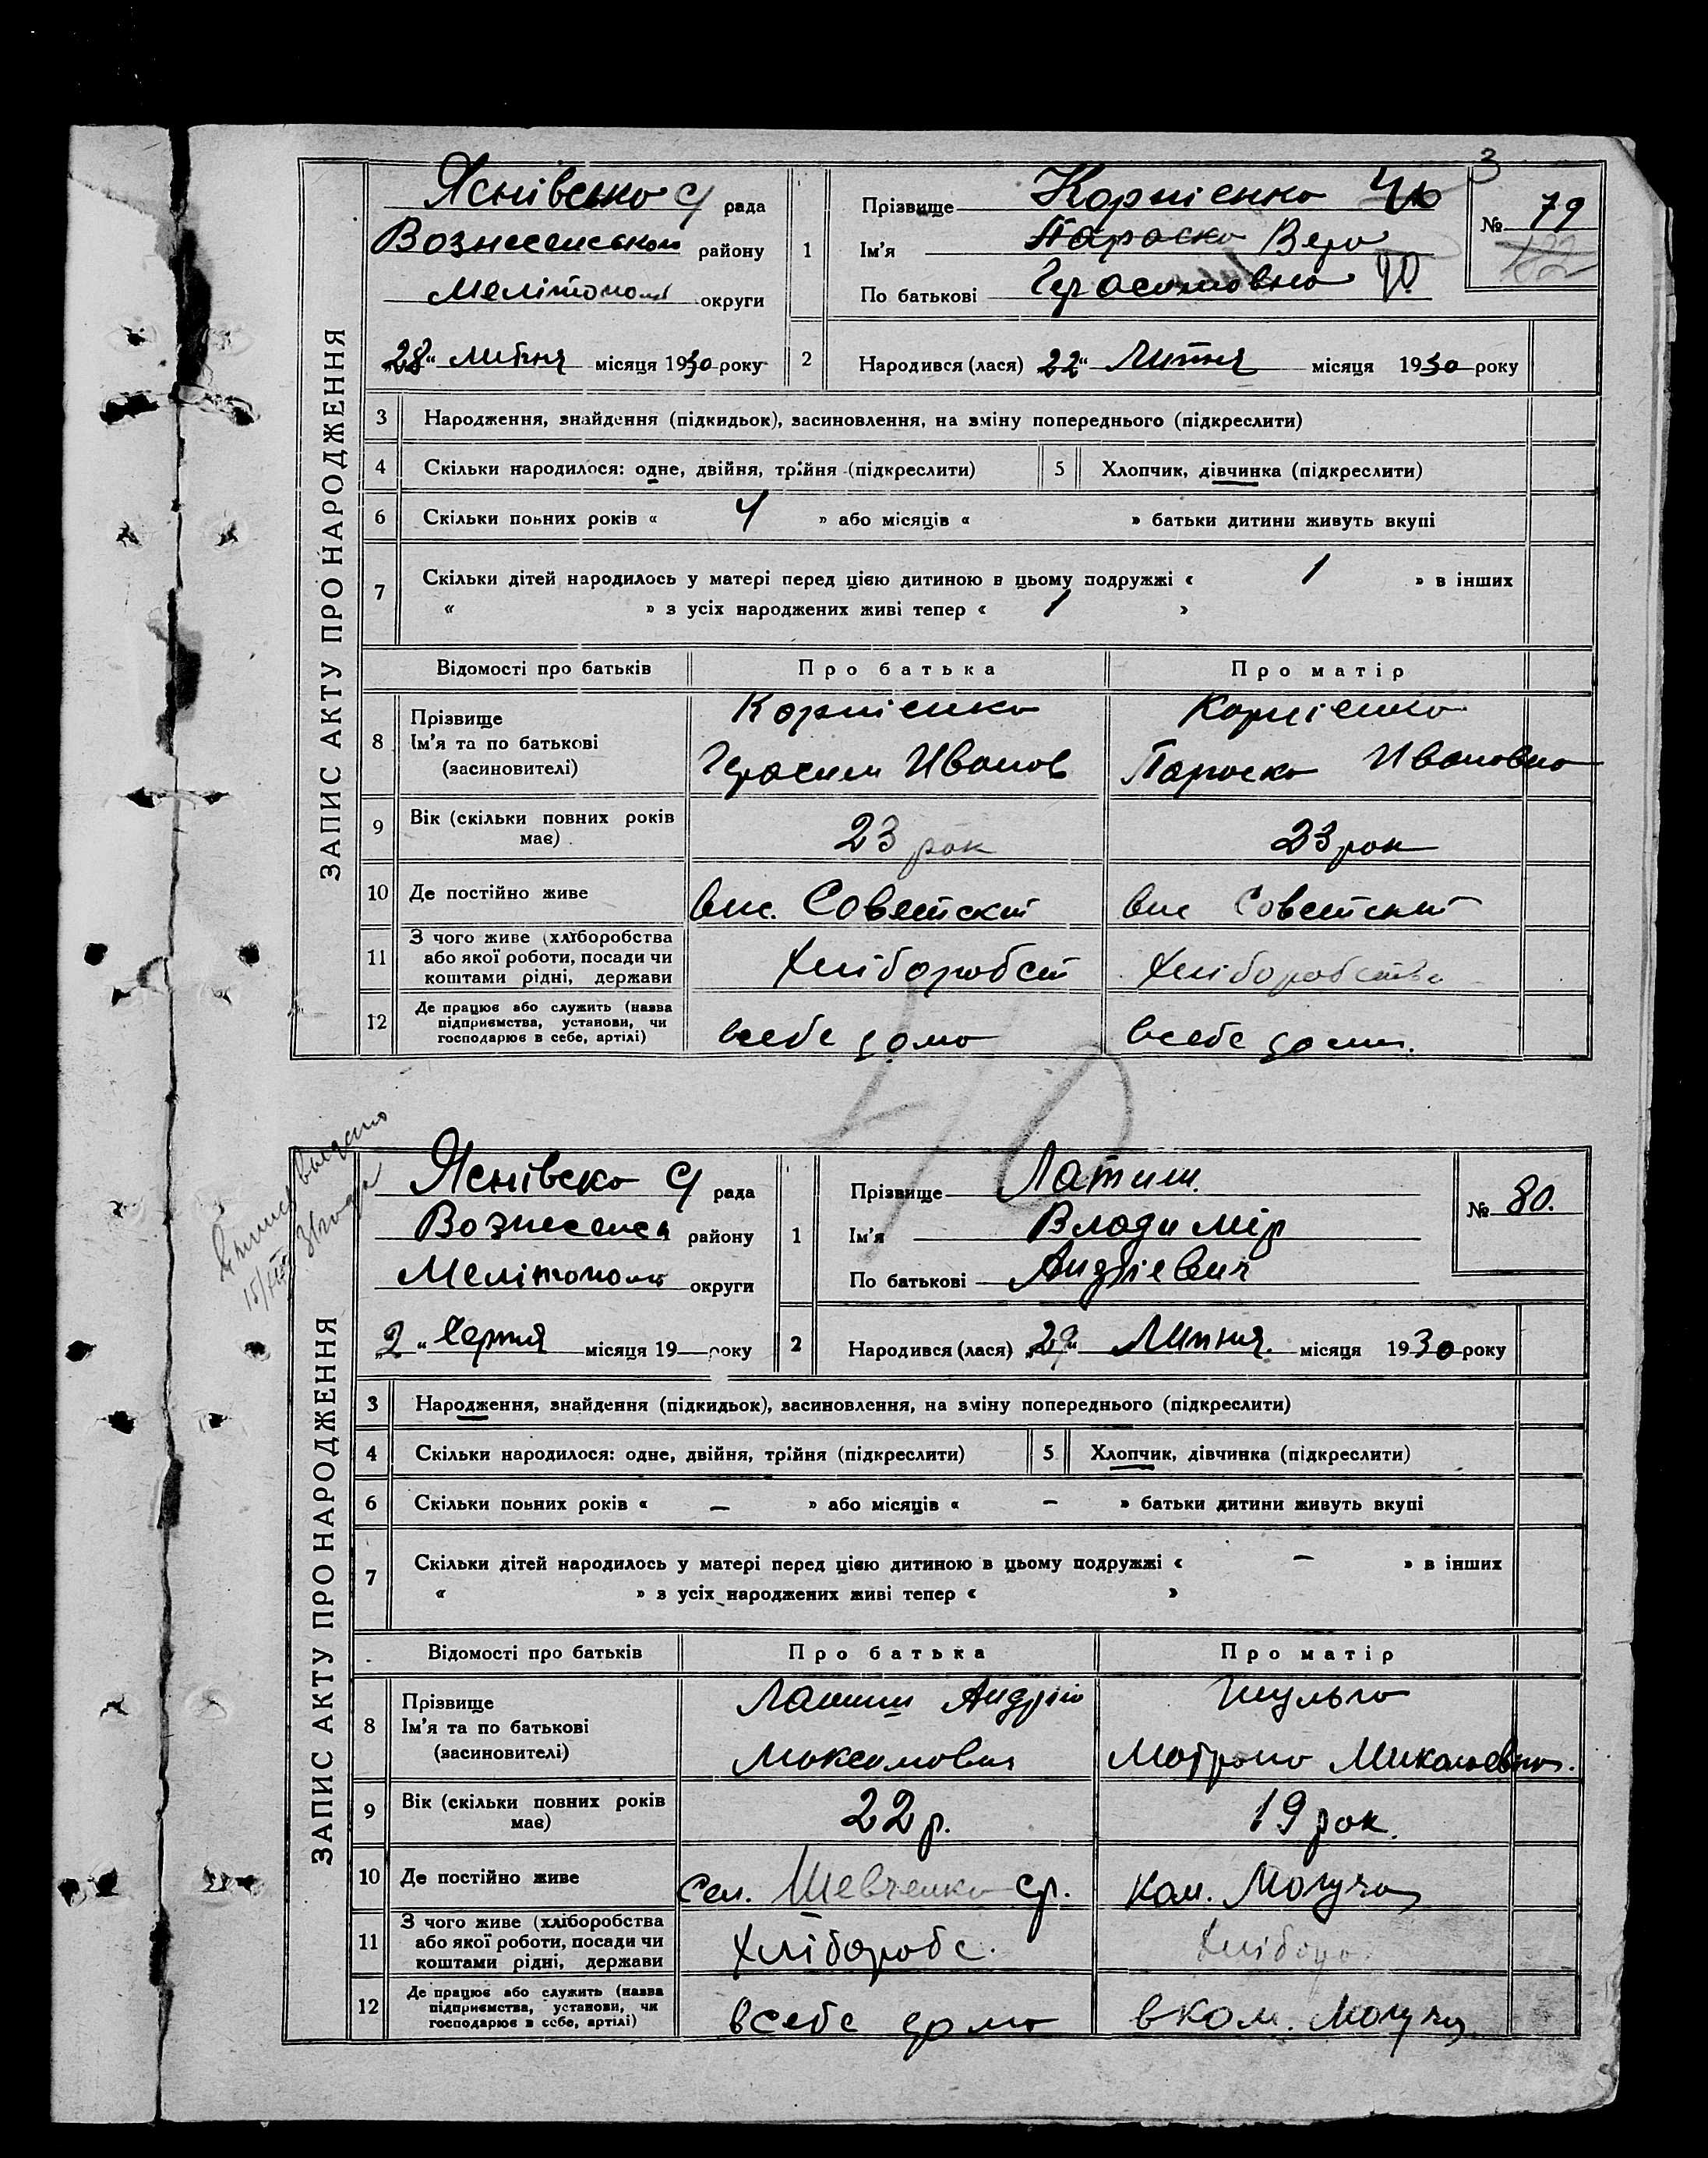 3
ЗАПИС АКТУ ПРО НАРОДЖЕННЯ
Яснівсько с/ рада
Вознесенського району
Мелітопол округи
28 " липня місяця 1930 року
1
Прізвище Корнієнко
Ім'я Параска Вера
По батькові Герасимовна
№ 79
122
2 Народився (лася) 22 " Липня місяця 1930 року
3 Народження, знайдення (підкидьок), засиновлення, на зміну попереднього (підкреслити)
4 Скільки народилося: одне, двійня, трійня (підкреслити) 5 Хлопчик, дівчинка (підкреслити)
6 Скільки повних років « 4 » або місяців « » батьки дитини живуть вкупі
7 Скільки дітей народилось у матері перед цією дитиною в цьому подружжі « 1 » в інших
« » з усіх народжених живі тепер « 1 »
Відомості про батьків Про батька Про матір
8 Прізвище Ім'я та по батькові (засиновителі)
Корнієнко Корнієнко
Герасим Иванов Параска Ивановна
9 Вік (скільки повних років має) 23 рок 23 рок
10 Де постійно живе вис. Советскій вис Советскій
11 З чого живе (хліборобства або якої роботи, посади чи коштами рідні, держави Хліборобст Хліборобства
12 Де працює або служить (назва підприємства, установи, чи господарює в себе, артілі) всебе дома всебе дома.
ЗАПИС АКТУ ПРО НАРОДЖЕННЯ
Яснівско с/ рада
Вознесенск району
Мелітополь округи
2 " Серпня місяця 19 року
1
Прізвище Латиш.
Ім'я Володимір
По батькові Андріевич
№ 80.
2 Народився (лася) 29 " Липня. місяця 1930 року
3 Народження, знайдення (підкидьок), засиновлення, на зміну попереднього (підкреслити)
4 Скільки народилося: одне, двійня, трійня (підкреслити) 5 Хлопчик, дівчинка (підкреслити)
6 Скільки повних років « – » або місяців « – » батьки дитини живуть вкупі
7 Скільки дітей народилось у матері перед цією дитиною в цьому подружжі « – » в інших
« » з усіх народжених живі тепер « »
Відомості про батьків Про батька Про матір
8 Прізвище Ім'я та по батькові (засиновителі)
Латиш Андрій Шульга
Максимович Мотрона Миколаевна.
9 Вік (скільки повних років має) 22 р. 19 рок.
10 Де постійно живе сел. Шевченко ср. ком. Могуча
11 З чого живе (хліборобства або якої роботи, посади чи коштами рідні, держави Хліборобс. Хлібороб
12 Де працює або служить (назва підприємства, установи, чи господарює в себе, артілі) всебе дома в ком. Могуча